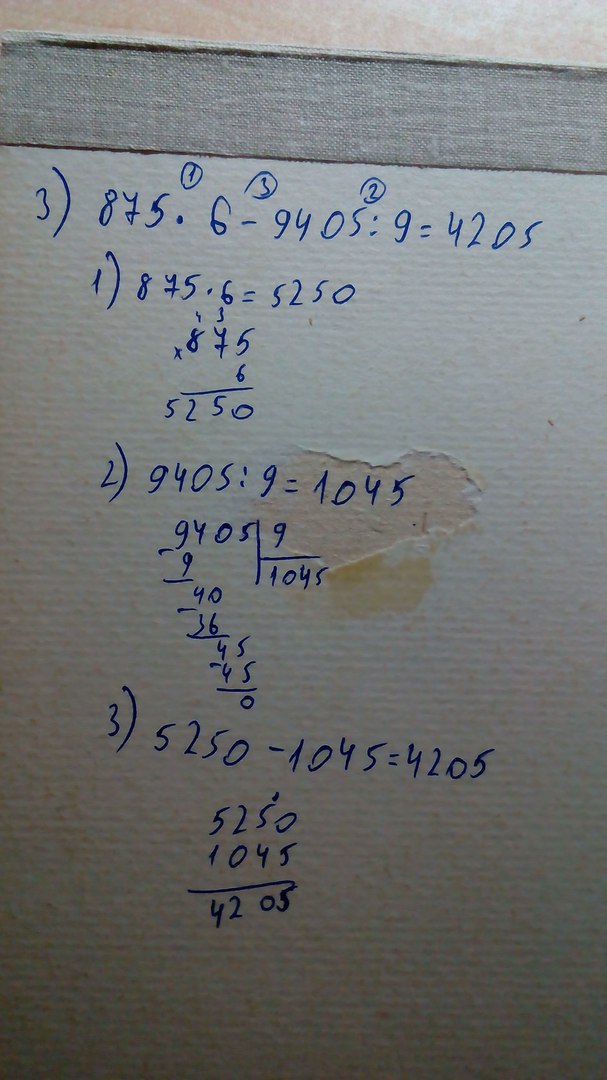 ① ③ ②
3) 875 · 6 - 9405 : 9 = 4205
1) 875 · 6 = 5250
4 3
× 875
6
5250
2) 9405 : 9 = 1045
- 9405 | 9
9 | 1045
- 40
36
- 45
45
0
3) 5250 - 1045 = 4205
5250
1045
4205